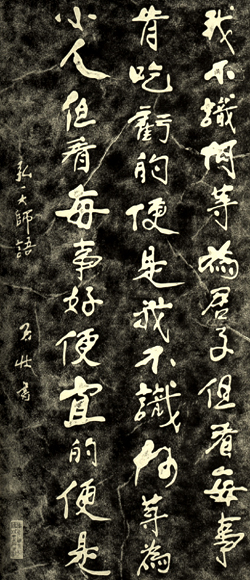 我不識何等為君子但看每事
肯吃虧的便是我不識何等為
小人但看每事好便宜的便是
弘一大師語